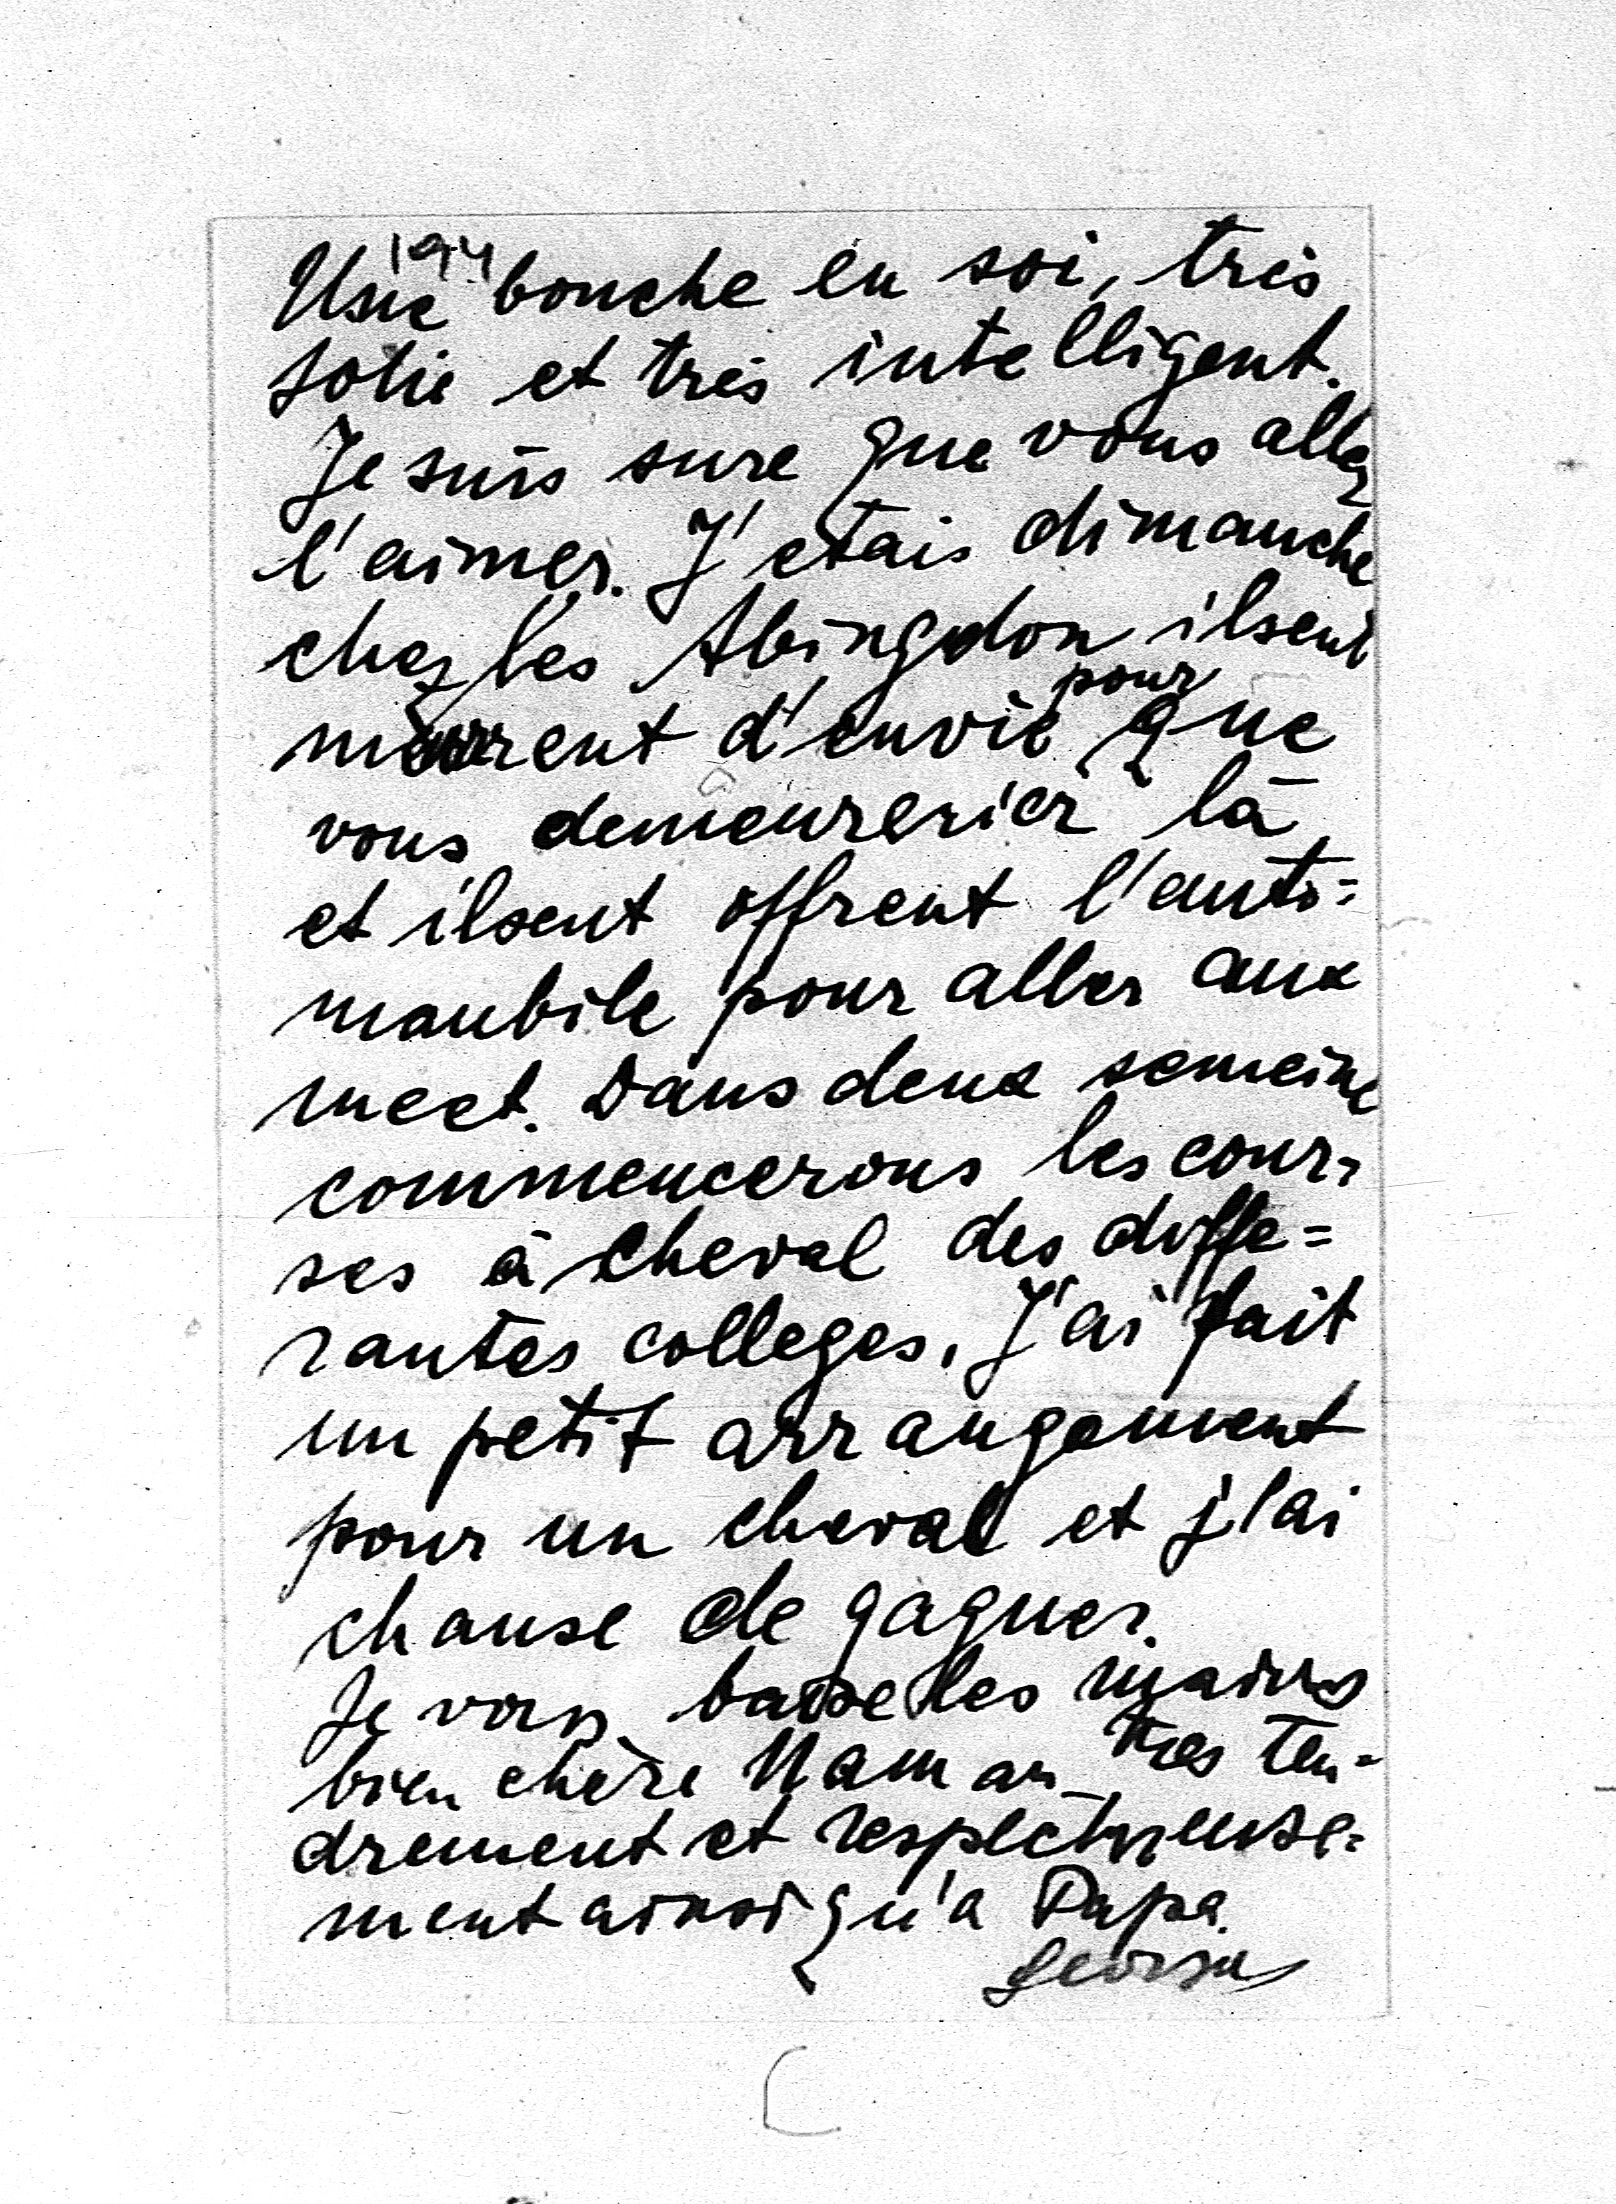 194
Usne bouche en soi, tres
jolie et tres intelligent.
Je suis sure que vous allez
l'aimer. J'etais dimanche
chez les Abingdon ilsent
meurrent d'envie pour que
vous demeurerier là
et ilsent offrent l'auto=
maubile pour aller aux
meet. Dans deux semeine
commencerons les cour=
ses à cheval des diffe=
rantes colleges. J'ai fait
un petit arrangement
pour un cheval et j'ai
chanse de gagner.
Je vous baise les mains
bien chère Maman tres ten=
drement et respectueuse=
ment ainsi qu'a Papa.